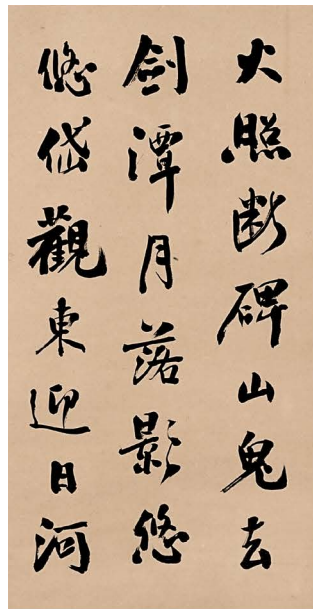 火照断碑山鬼去
剑潭月落影悠
悠岱觀東迎日河